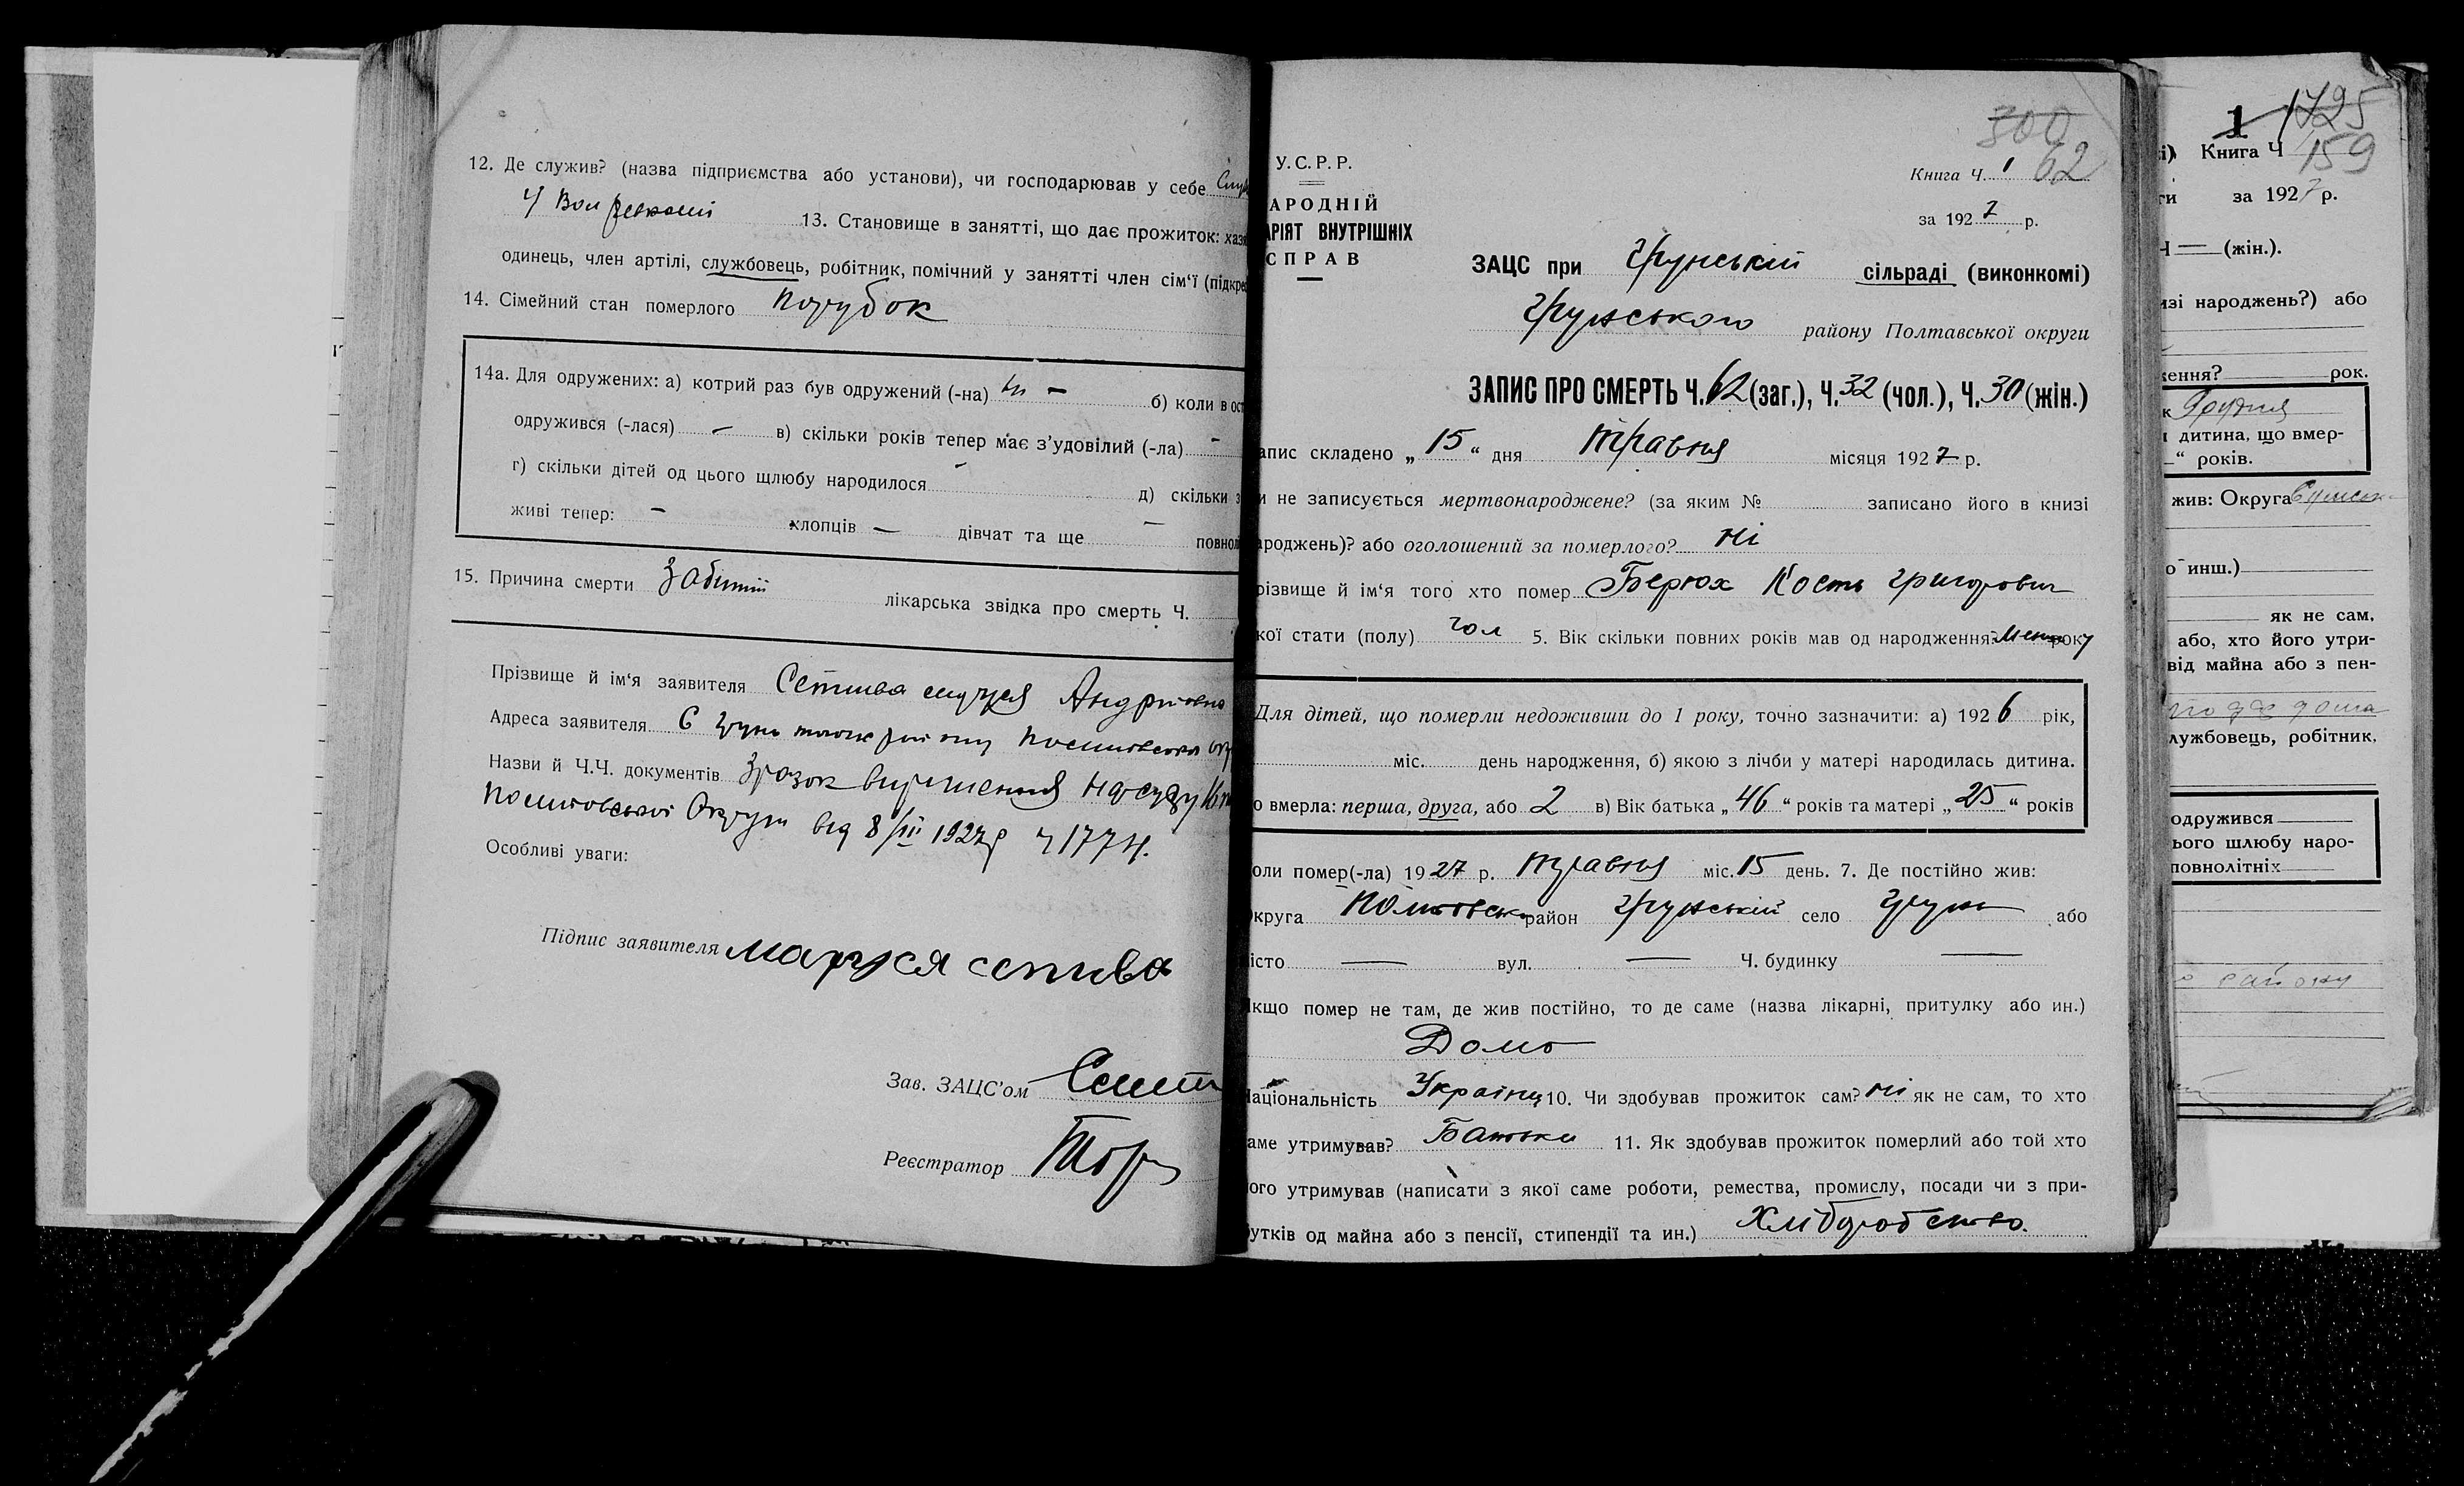 12. Де служив? (назва підприємства або установи), чи господарював у себе
13. Становище в занятті, що дає прожиток: хазя
одинець, член артілі, службовець, робітник, помічний у занятті член сім'ї (підкре
14. Сімейний стан померлого Парубок
14а. Для одружених: а) котрий раз був одружений (-на) — б) коли в ост
одружився (-лася) — в) скільки років тепер має з'удовілий (-ла) -
г) скільки дітей од цього щлюбу народилося - д) скільки з
живі тепер: — хлопців — дівчат та ще — повнолі
15. Причина смерти Забитий лікарська звідка про смерть Ч.
Прізвище й ім'я заявителя Сетива Маруся Андріівна
Адреса заявителя С Грунь того району Полтавської
Назви й Ч.Ч. документів Зразок вирішення Нарсуду
Полтавської Округи від 8/III 1927 р ч 1774.
Особливі уваги:
Підпис заявителя Маруся сетива
Зав. ЗАЦС'ом
Реєстратор
300
62
У.С.Р.Р.
АРОДНІЙ
АРІЯТ ВНУТРІШНІХ
СПРАВ
Книга Ч. 1
за 1927 р.
ЗАЦС при Грунській сільраді (виконкомі)
Грунського району Полтавської округи
ЗАПИС ПРО СМЕРТЬ Ч. 62 (заг.), Ч. 32 (чол.), Ч. 30 (жін.)
апис складено „15“ дня Травня місяця 1927 р.
и не записується мертвонароджене? (за яким № записано його в книзі
ароджень)? або оголошений за померлого? Ні
різвище й ім'я того хто помер Берюх Кость Григорович
кої стати (полу) Чол 5. Вік скільки повних років мав од народження? Менш року
Для дітей, що померли недоживши до 1 року, точно зазначити: а) 1926 рік,
міс. день народження, б) якою з лічби у матері народилась дитина.
о вмерла: перша, друга, або 2 в) Вік батька „46“ років та матері „25“ років
оли помер(-ла) 1927 р. Травня міс. 15 день. 7. Де постійно жив:
круга Полтовська район Грунській село Грунь або
істо — вул. — Ч. будинку —
кщо помер не там, де жив постійно, то де саме (назва лікарні, притулку або ин.)
Дома
аціональність Українц 10. Чи здобував прожиток сам? ні як не сам, то хто
аме утримував? Батьки 11. Як здобував прожиток померлий або той хто
ого утримував (написати з якої саме роботи, ремества, промислу, посади чи з при-
утків од майна або з пенсії, стипендії та ин.) Хліборобство.
1 1725
і) Книга Ч 159
ти за 1927 р.
Ч — (жін.).
изі народжень?) або
ження? рок.
к Грудня
дитина, що вмер-
—“ років.
жив: Округа Сумськ
о инш.)
як не сам,
або, хто його утри-
від майна або з пен-
лужбовець, робітник,
одружився
ього шлюбу наро-
повнолітніх